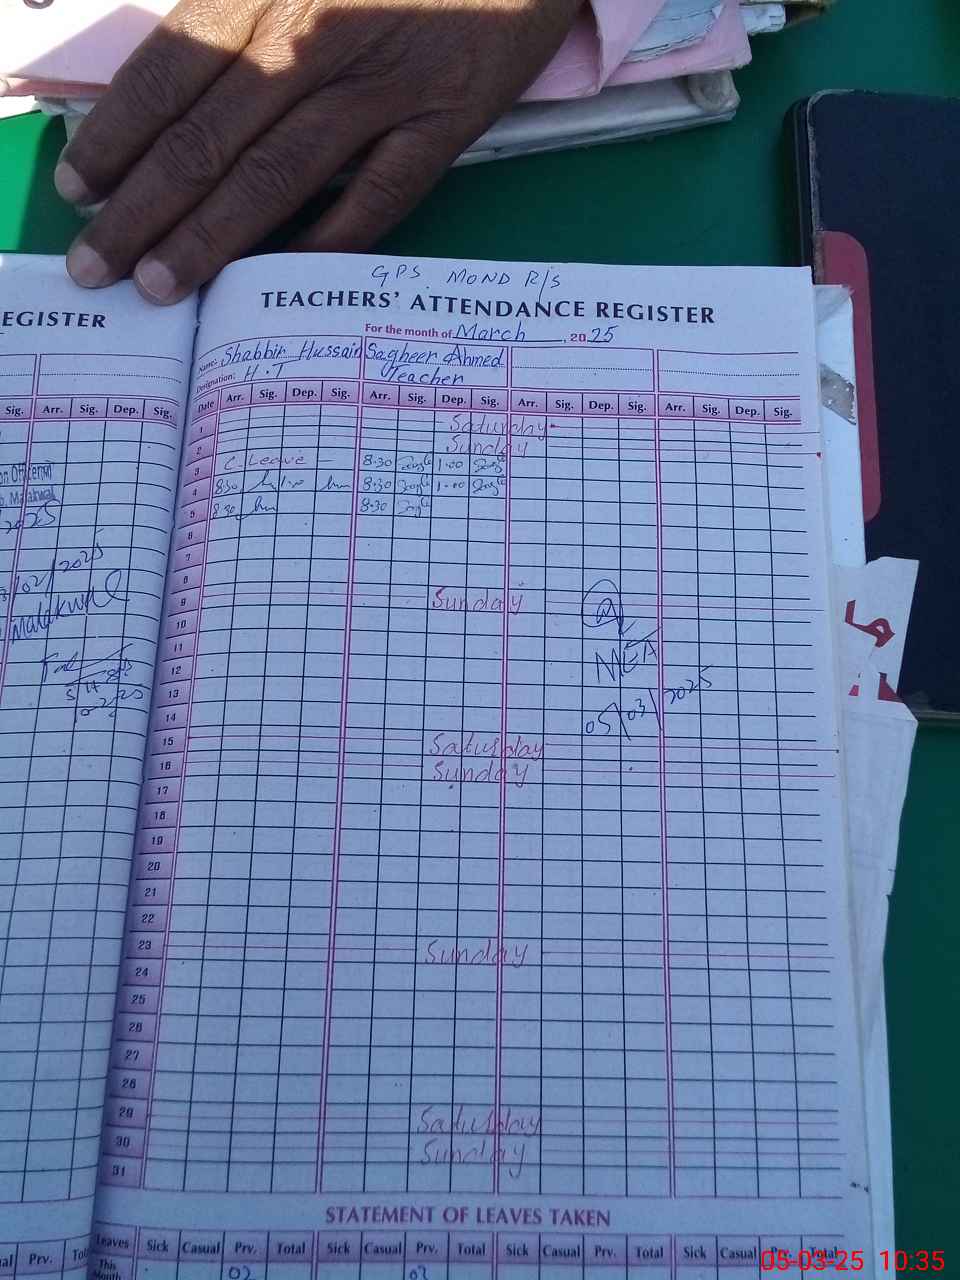 GPS MOND R/S
EGISTER
TEACHERS' ATTENDANCE REGISTER
For the month of March, 2025
Name: Shabbir Hussain Sagheer Ahmed
Designation: H.T Teacher
Sig. Arr. Sig. Dep. Sig.
Date Arr. Sig. Dep. Sig. Arr. Sig. Dep. Sig. Arr. Sig. Dep. Sig. Arr. Sig. Dep. Sig.
1 Saturday
2 Sunday
3 C-Leave 8.30 1.00
4 8.30 1.00 8.30 1.00
5 8.30 8.30
6
7
8
9 Sunday
10
11
12
13
14
15 Saturday
16 Sunday
17
18
19
20
21
22
23 Sunday
24
25
26
27
28
29 Saturday
30 Sunday
31
MEA
05/03/2025
02/2025
Malakwal
STATEMENT OF LEAVES TAKEN
Prv.
Leaves Sick Casual Prv. Total Sick Casual Prv. Total Sick Casual Prv. Total Sick Casual Prv. Total
This Month 02 02
05-03-25 10:35